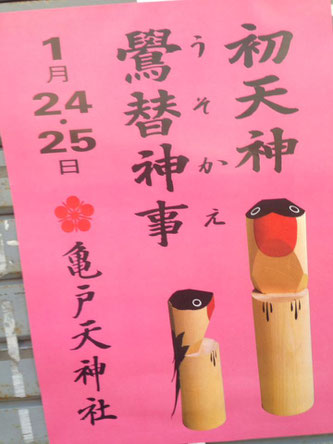 初天神
うそかえ
鷽替神事
1月24・25日
亀戸天神社